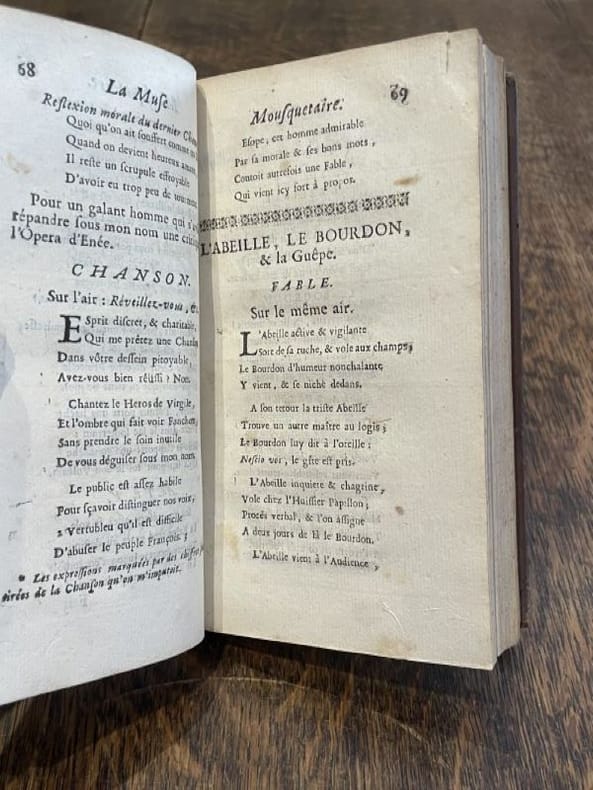 68
La Muse
Reflexion morale du dernier
Quoi qu'on ait souffert comme
Quand on devient heureux amant
Il reste un scrupule effroyable
D'avoir eu trop peu de tourment
Pour un galant homme qui
répandre sous mon nom une
l'Opera d'Enée.
CHANSON.
Sur l'air : Réveillez-vous,
Esprit discret, & charitable,
Qui me prêtez une
Dans vôtre dessein pitoyable,
Avez-vous bien réüssi ? Non.
Chantez le Heros de Virgile,
Et l'ombre qui fait voir Fanchon,
Sans prendre le soin inutile
De vous déguiser sous mon nom.
Le public est assez habile
Pour sçavoir distinguer nos voix,
2 Vertubleu qu'il est difficile
D'abuser le peuple François.
* Les expressions marquées par des chifres
tirées de la Chanson qu'on m'imputoit.
Mousquetaire. 69
Esope, cet homme admirable
Par sa morale & ses bons mots,
Contoit autrefois une Fable,
Qui vient icy fort à propos.
L'ABEILLE, LE BOURDON,
& la Guêpe.
FABLE.
Sur le même air.
L'Abeille active & vigilante
Sort de sa ruche, & vole aux champs;
Le Bourdon d'humeur nonchalante
Y vient, & se niche dedans.
A son retour la triste Abeille
Trouve un autre maître au logis;
Le Bourdon luy dit à l'oreille :
Nescio vos, le gîte est pris.
L'Abeille inquiete & chagrine,
Vole chez l'Huissier Papillon;
Procés verbal, & l'on assigne
A deux jours de là le Bourdon.
L'Abeille vient à l'Audience,